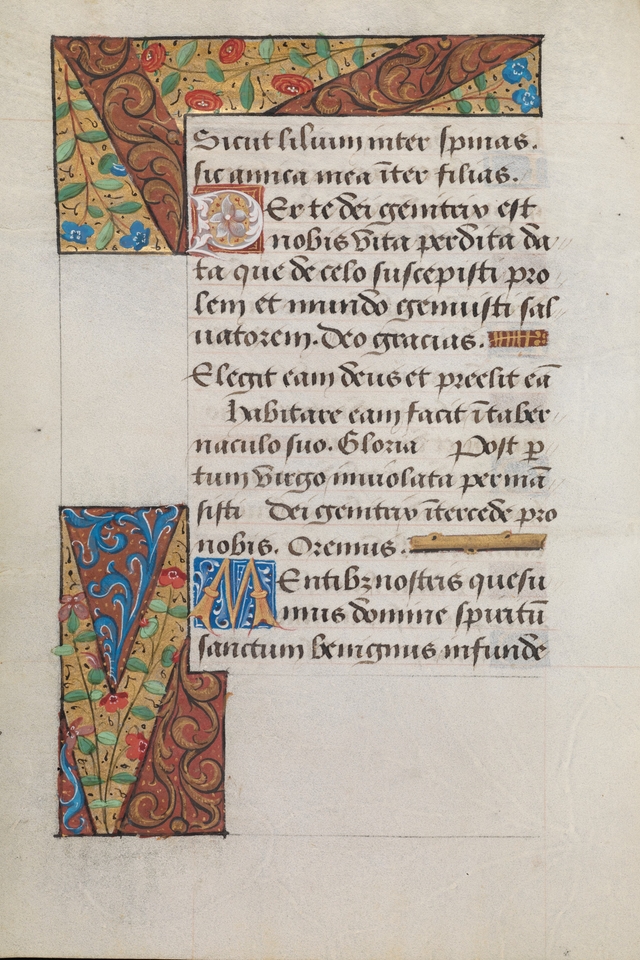 Sicut lilium inter spinas.
sic amica mea īter filias.
Per te dei genitrix est
nobis vita perdita da
ta que de celo suscepisti pro
lem et mundo genuisti sal
uatorem. Deo gracias.
Elegit eam deus et preelit eā
habitare eam facit ītaber
naculo suo. Gloria Post p̄
tum virgo inuiolata permā
sisti Dei genitrix ītercede pro
nobis. Oremus.
Mentibꝫ nostris quesu
mus domine spiritū
sanctum benignus infunde